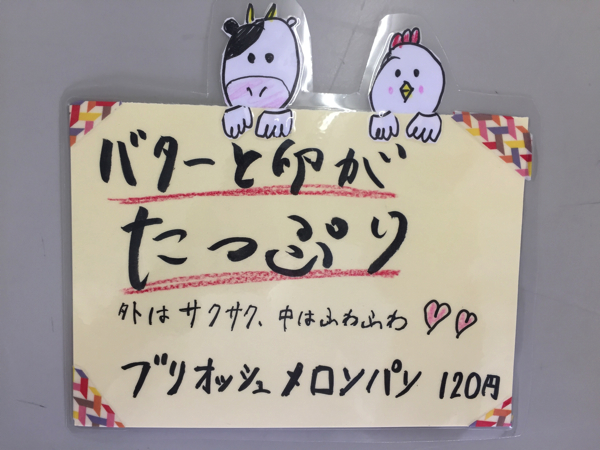 バターと卵が
たっぷり
外はサクサク、中はふわふわ
ブリオッシュメロンパン 120円